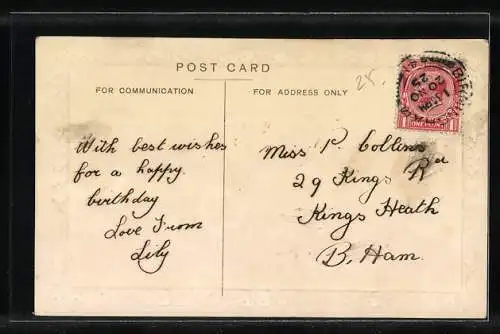 POST CARD
FOR COMMUNICATION
FOR ADDRESS ONLY
25.
With best wishes
for a happy
birthday
Love From
Lily
Miss P. Collins
29 Kings Rd
Kings Heath
B. Ham.